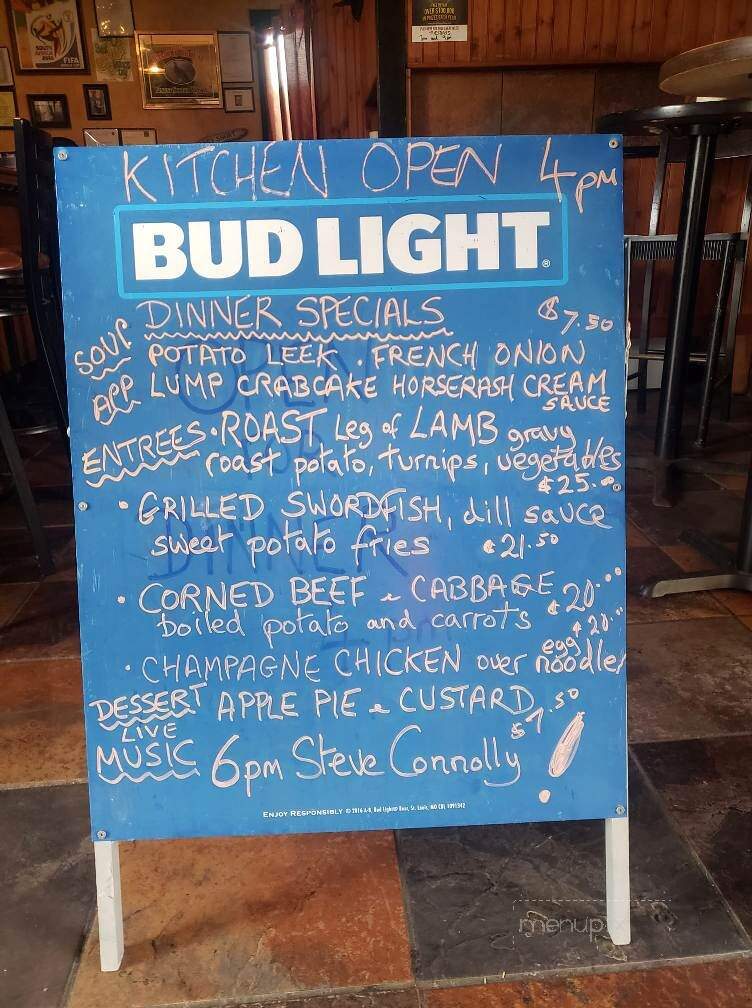 SOUTH AFRICA
FIFA
OVER $100,000
KITCHEN OPEN 4pm
BUD LIGHT®
DINNER SPECIALS
SOUP POTATO LEEK · FRENCH ONION $7.50
APP LUMP CRABCAKE HORSERASH CREAM SAUCE
ENTREES · ROAST Leg of LAMB gravy
roast potato, turnips, vegetables
$25.00
· GRILLED SWORDFISH, dill sauce
sweet potato fries $21.50
· CORNED BEEF & CABBAGE $20.00
boiled potato and carrots
$20.00
· CHAMPAGNE CHICKEN over egg noodles
DESSERT APPLE PIE & CUSTARD $7.50
LIVE MUSIC 6pm Steve Connolly!
OPEN
FOR
DINNER
pm
ENJOY RESPONSIBLY © 2016 A-B, Bud Light® Beer, St. Louis, MO
menupix